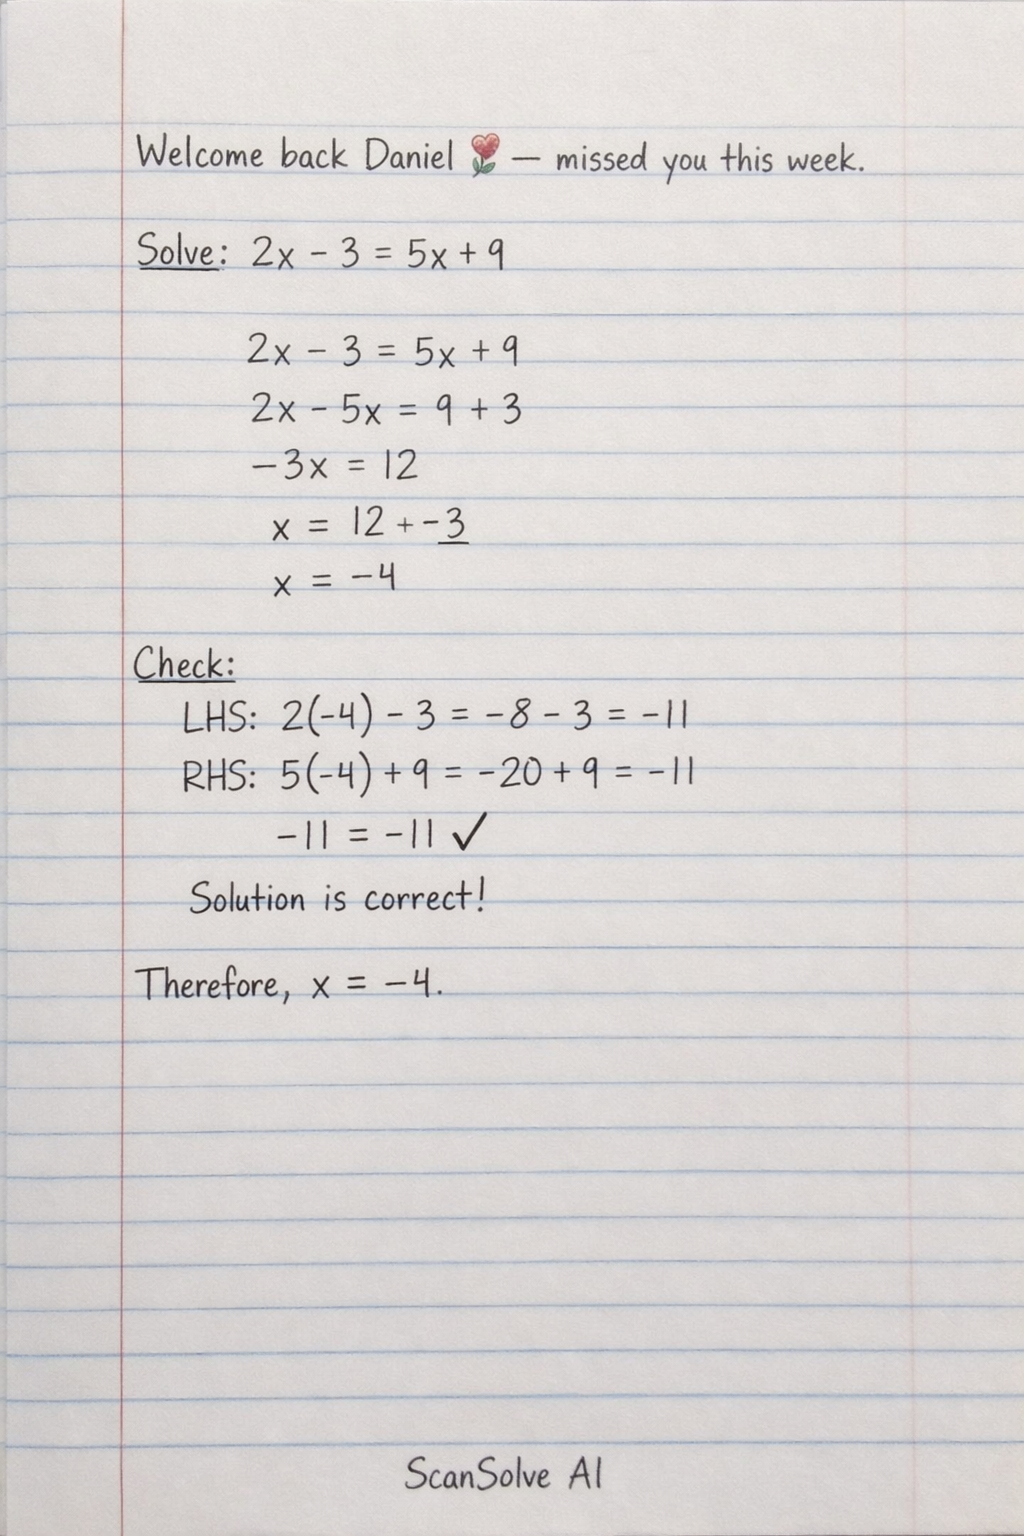 Welcome back Daniel 🌹 — missed you this week.
Solve: 2x - 3 = 5x + 9
2x - 3 = 5x + 9
2x - 5x = 9 + 3
-3x = 12
x = 12 + -3
x = -4
Check:
LHS: 2(-4) - 3 = -8 - 3 = -11
RHS: 5(-4) + 9 = -20 + 9 = -11
-11 = -11 ✓
Solution is correct!
Therefore, x = -4.
ScanSolve AI